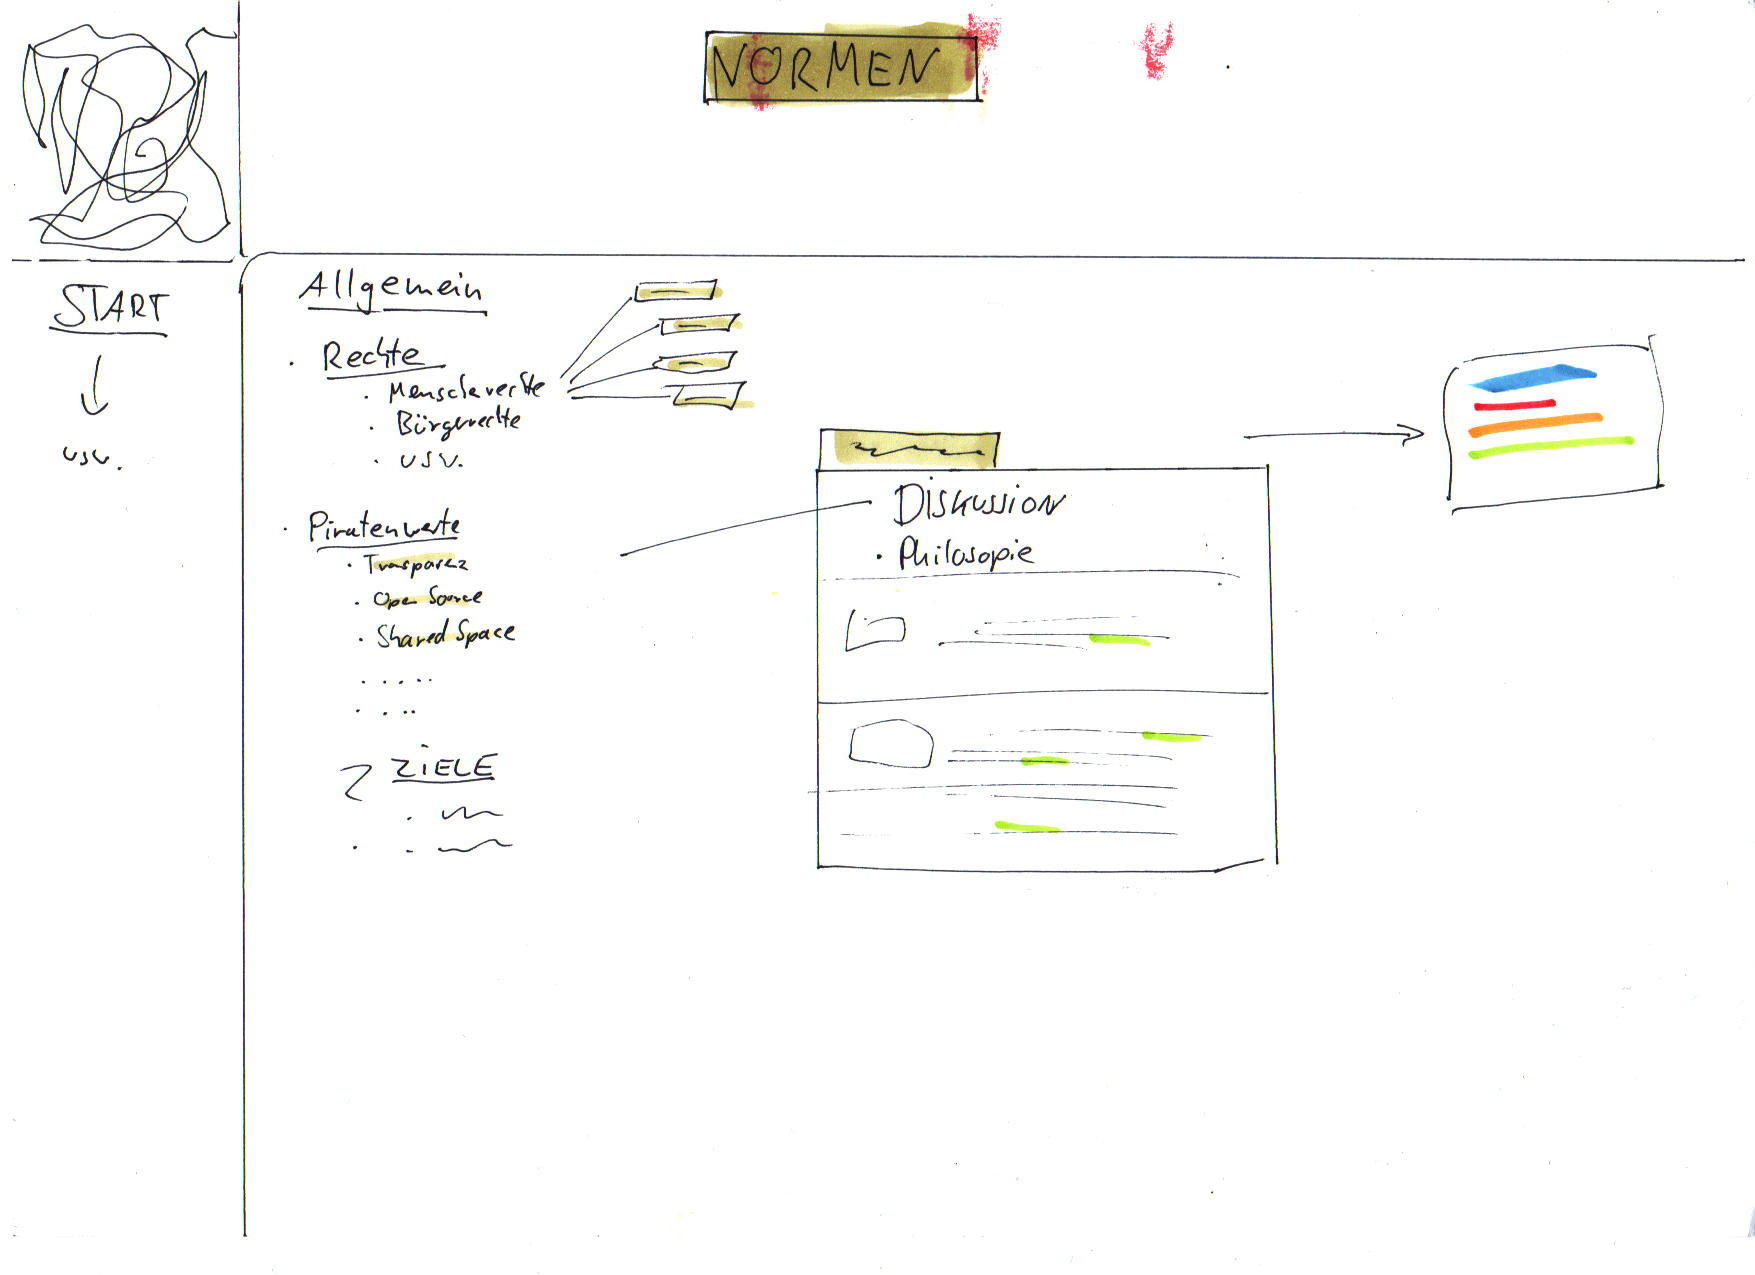 NORMEN
START
usw.
Allgemein
· Rechte
· Menschenrechte
· Bürgerrechte
· usw.
· Piratenwerte
· Trasparez
· Open Source
· Shared Space
ZIELE
Diskussion
· Philosopie